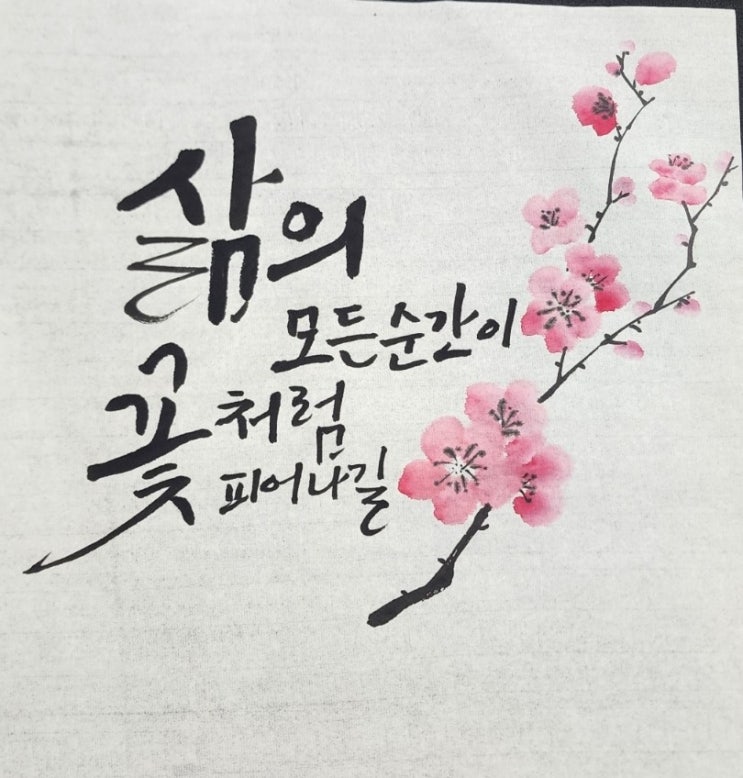 삶의
모든순간이
꽃처럼
피어나길